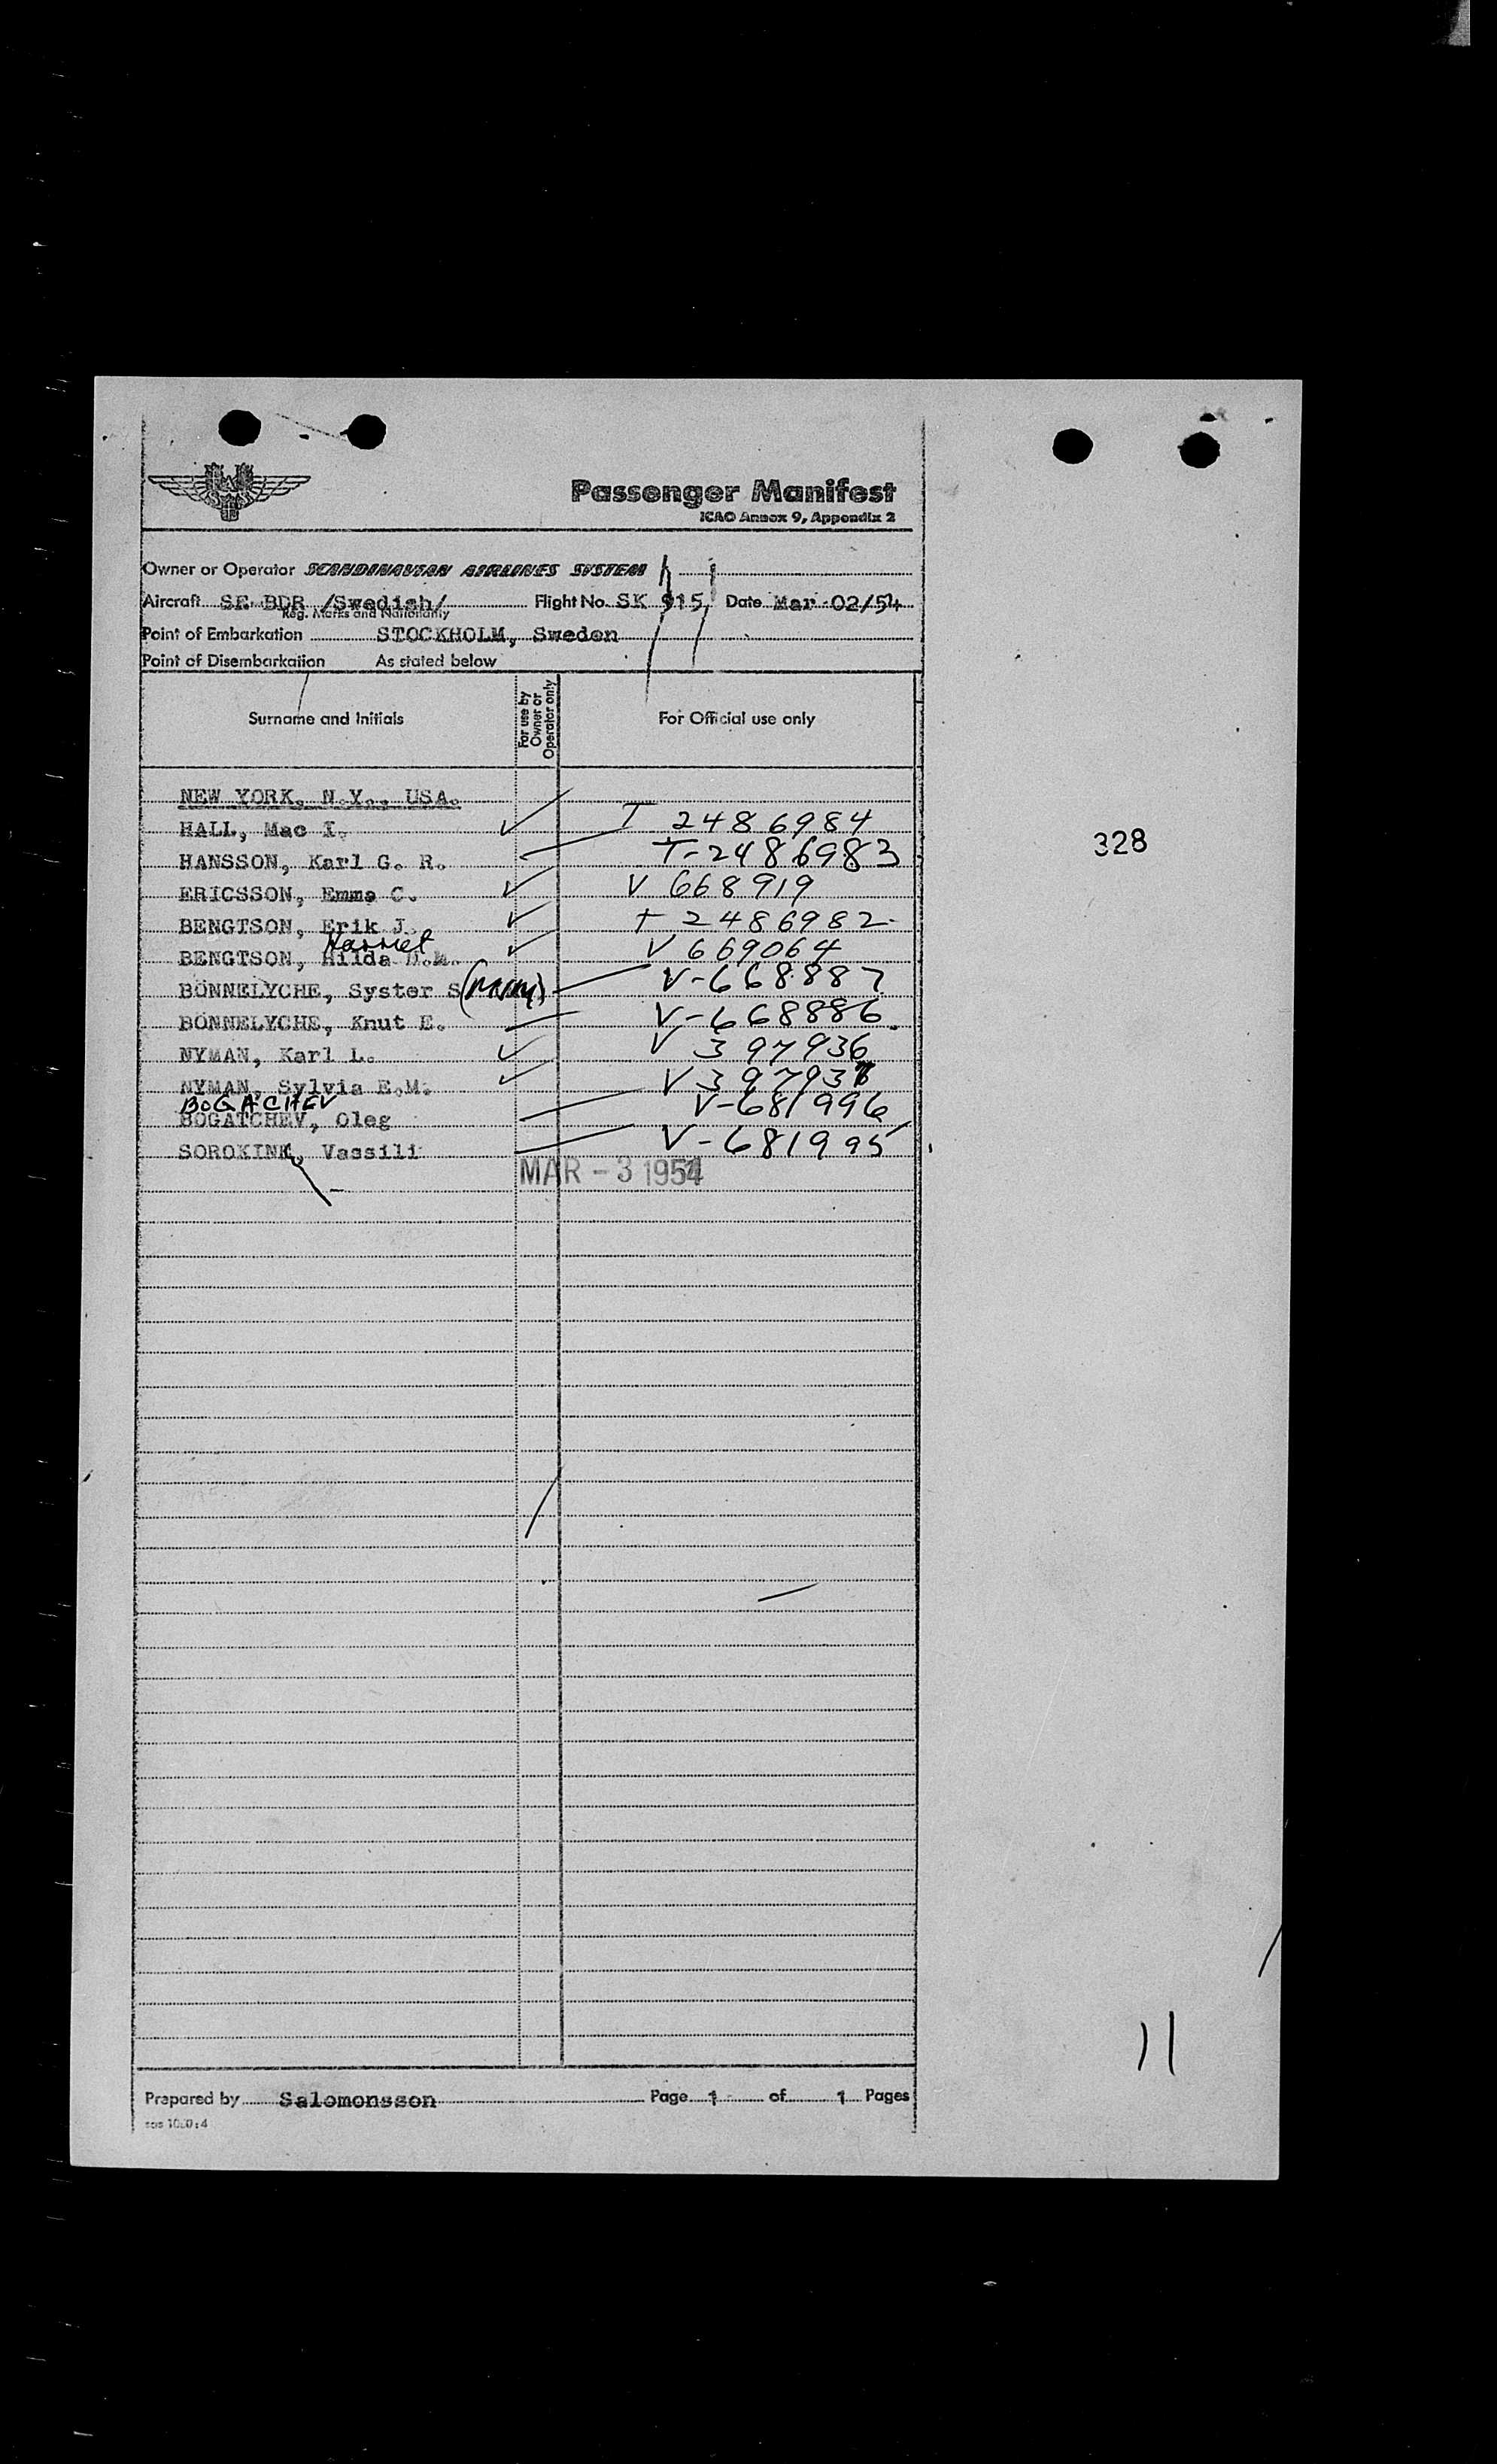 Passenger Manifest
ICAO Annex 9, Appendix 2
Owner or Operator SCANDINAVIAN AIRLINES SYSTEM
Aircraft SE BDR /Swedish/ Flight No. SK 915 Date Mar 02/54
Reg. Marks and Nationality
Point of Embarkation STOCKHOLM, Sweden
Point of Disembarkation As stated below
Surname and Initials For use by Owner or Operator only For Official use only
NEW YORK, N.Y., USA.
HALL, Mac I. T 2486984
328
HANSSON, Karl G. R. T-2486983
ERICSSON, Emma C. V 668919
BENGTSON, Erik J. T 2486982
Harriet
BENGTSON, Hilda H.M. V 669064
BÖNNELYCHE, Syster S V-668887
BÖNNELYCHE, Knut E. V-668886
NYMAN, Karl L. V 397936
NYMAN, Sylvia E.M. V 397937
BOGACHEV
BOGATCHEV, Oleg V-681996
SOROKINE, Vassili V-681995
MAR - 3 1954
11
Prepared by Salomonsson Page 1 of 1 Pages